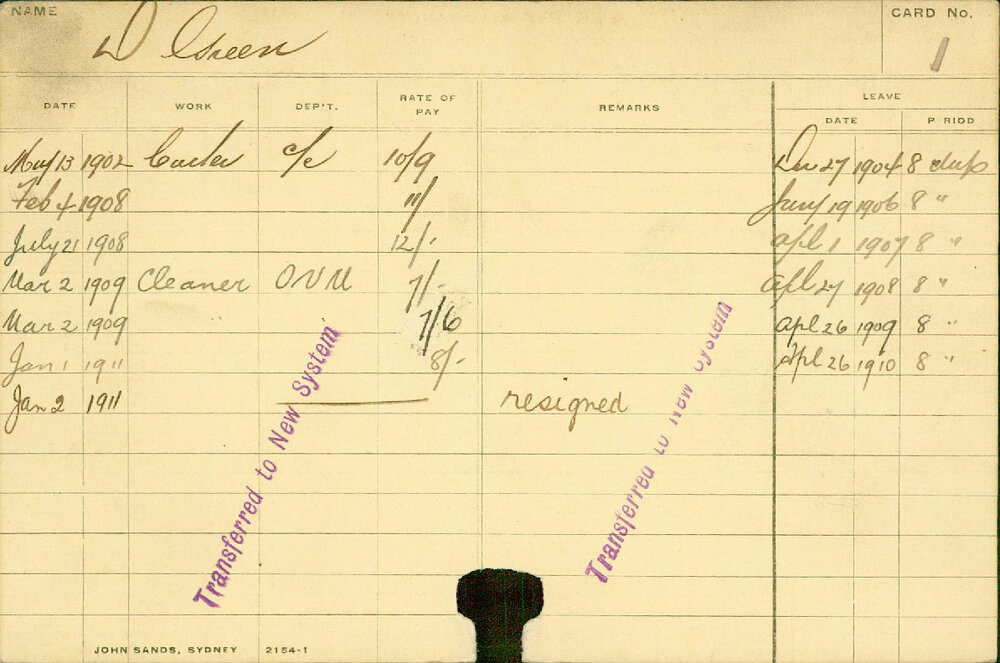 NAME D Green CARD No. 1
DATE WORK DEP'T. RATE OF PAY REMARKS LEAVE
DATE P RIOD
May 13 1902 c/c 10/9 1904 8 days
Feb 4 1908 11/ 19 1906 8 "
July 21 1908 12/- apl 1 1907 8 "
Mar 2 1909 Cleaner OVM 7/- apl 27 1908 8 "
Mar 2 1909 7/6 apl 26 1909 8 "
Jan 1 1911 8/- Apl 26 1910 8 "
Jan 2 1911 resigned
Transferred to New System
Transferred to New System
JOHN SANDS, SYDNEY 2154-1